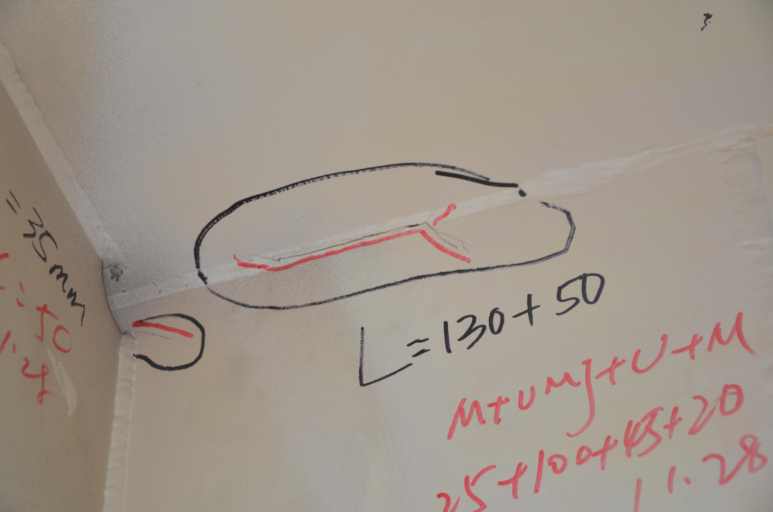 =35mm
L=50
11.28
L=130+50
M+UMJ+U+M
25+100+45+20
11.28